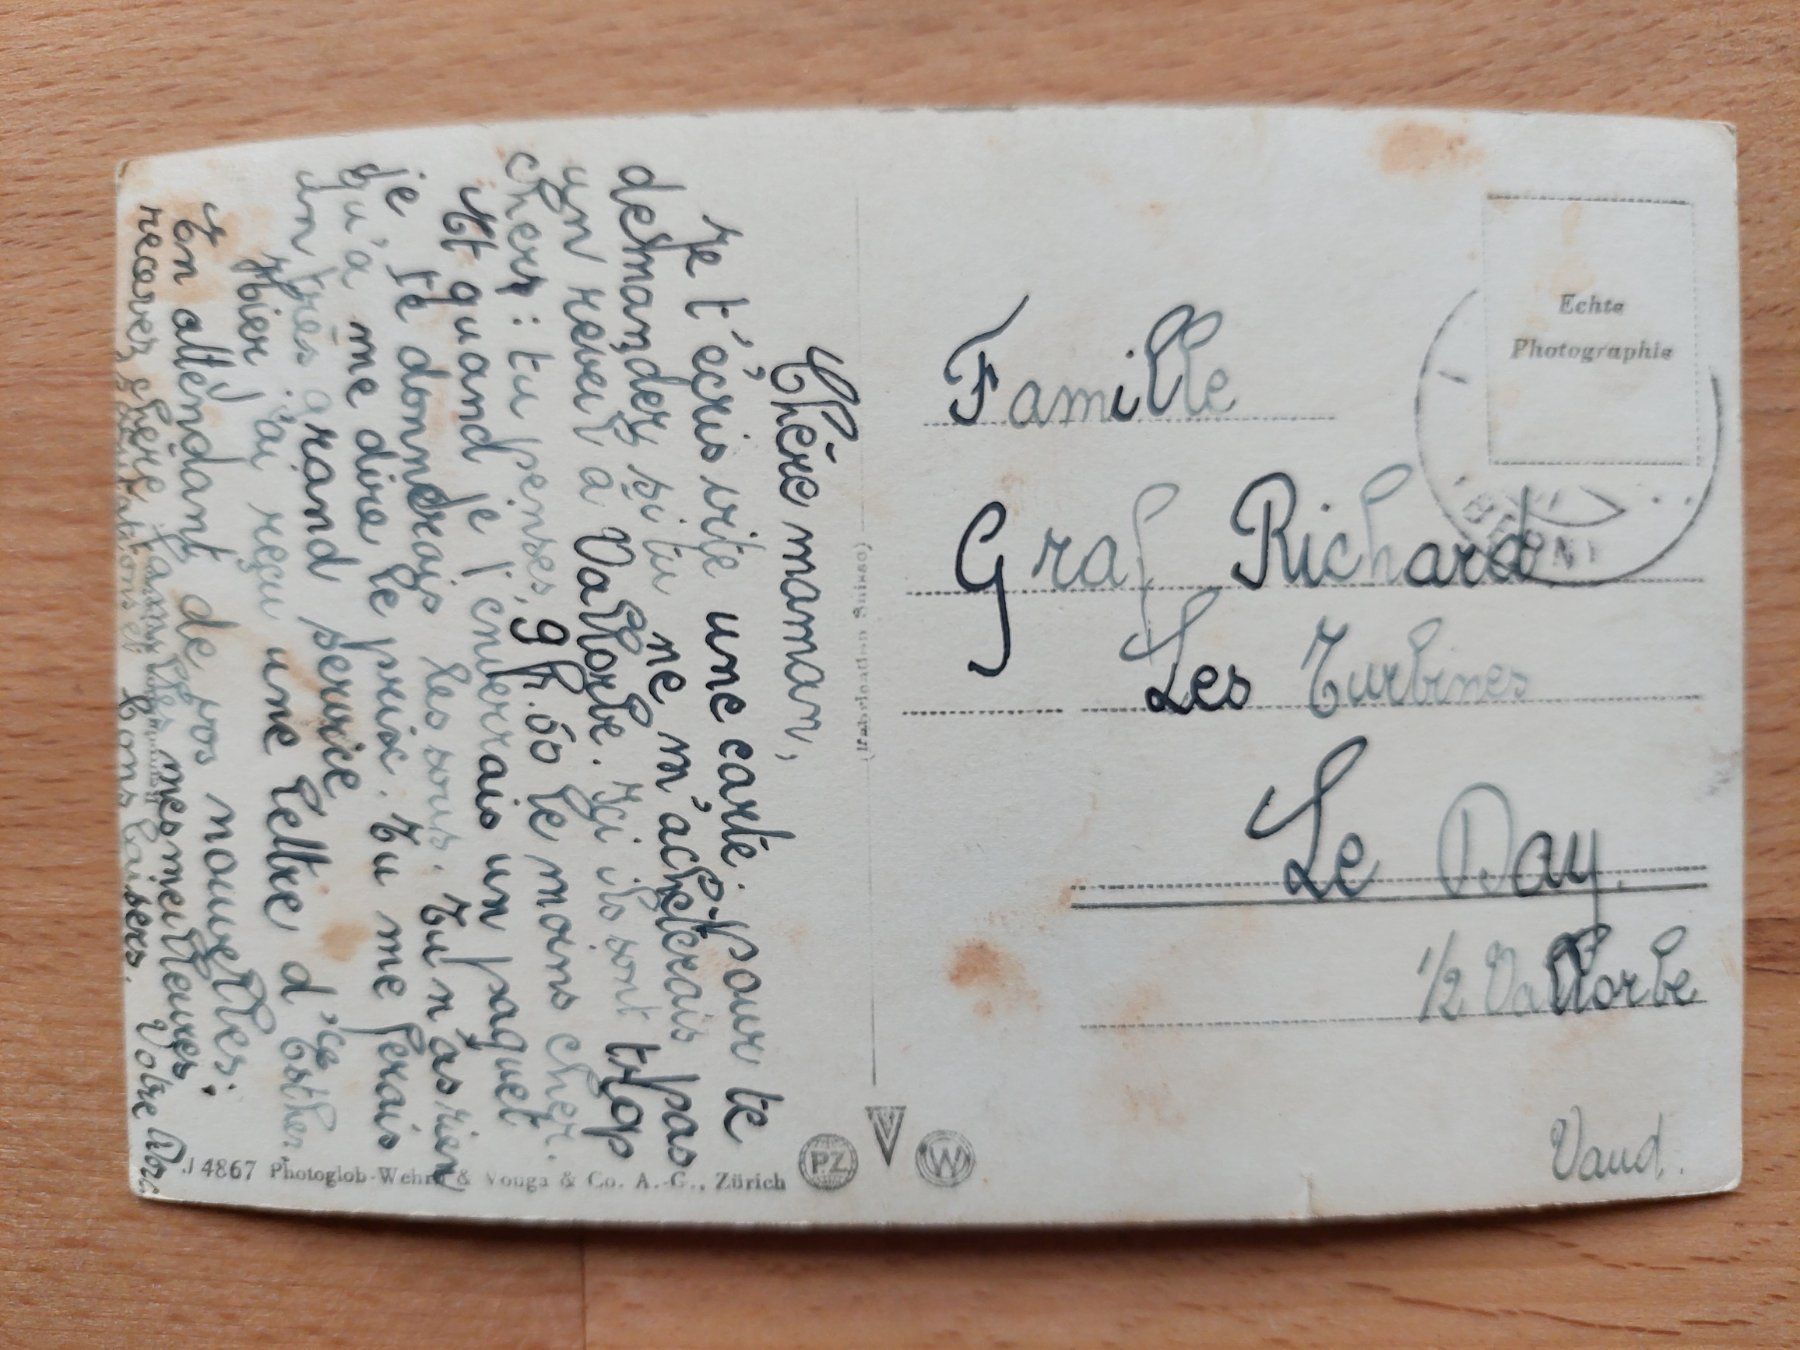 Chère maman,
Je t'écris vite une carte. pour te
demander si tu ne m'achèterais pas
un réveil à Vallorbe. Ici ils sont trop
chers: tu penses, 9 fr. 50 le moins cher.
Et quand je t'enverrais un paquet
je te donnerais les sous. Tu n'as rien
qu'à me dire le prix. Tu me ferais
un très grand service
Hier j'ai reçu une lettre d'Esther.
En attendant de vos nouvelles;
recevez chère famille mes meilleures
salutations et bons baisers. Votre
(Fabrication Suisse)
Echte
Photographie
BERN 1
Famille
Graf Richard
Les Turbines
Le Day.
1/2 Vallorbe
Vaud.
J 4867 Photoglob-Wehrli & Vouga & Co. A.-G., Zürich
PZ V W